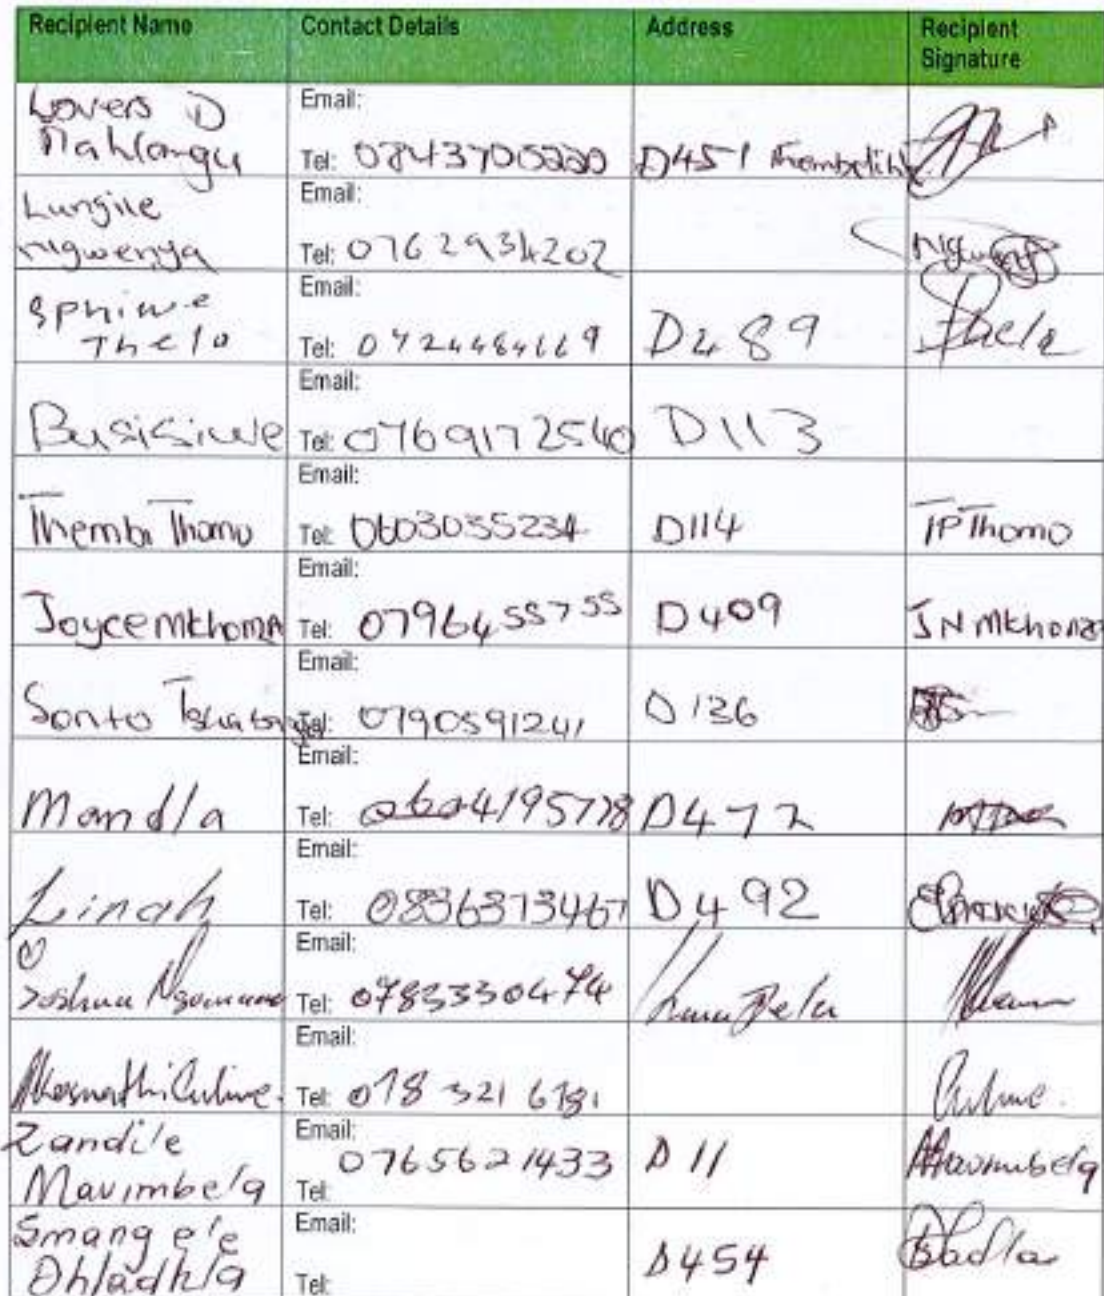 Recipient Name Contact Details Address Recipient
Signature
Lovers D
Mahlangu
Email:
Tel: D451
Lungile
nigwenya
Email:
Tel: 0762934202
Sphiwe
Thela
Email:
Tel: D489
Busisiwe
Email:
Tel: 0769172540 D113
Thembi Thomo
Email:
Tel: 0603035234 D114 TP Thomo
Joyce Mkhonza
Email:
Tel: 0796455755 D409 JN Mkhonza
Sonto
Email:
Tel: 0790591241 D136
Mandla
Email:
Tel: D472
Linah
Email:
Tel: 0836373467 D492
Joshua
Email:
Tel: 0783330474
Email:
Tel: 078 321 6781
Zandile
Mavimbela
Email:
0765621433 D11 Mavimbela
Tel:
Smangele
Dhladhla
Email:
D454
Tel: